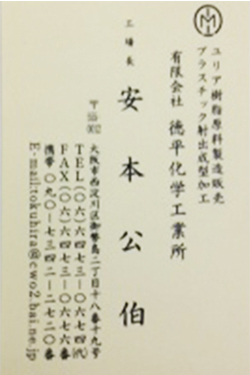 ユリア樹脂原料製造販売
プラスチック射出成型加工
有限会社 徳平化学工業所
工場長
安本公伯
大阪市西淀川区御幣島二丁目十八番十九号
TEL(〇六)六四七三ー〇六七四(代)
FAX(〇六)六四七三ー〇六七六番
携帯 〇九〇ー三一四二ー二七二〇番
E-mail:tokuhira@cwo2.bai.ne.jp